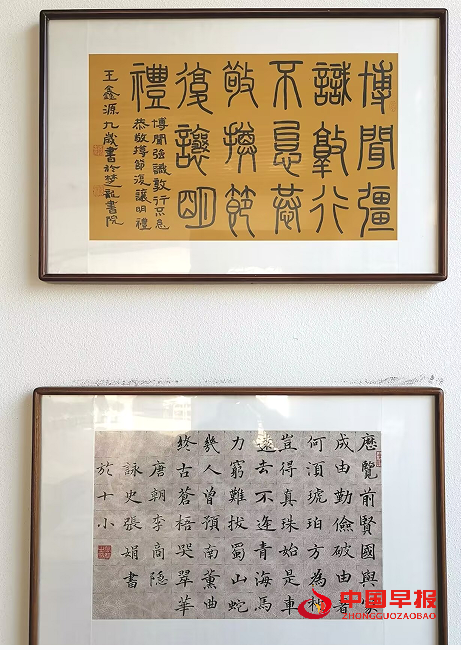 博聞彊
識敦行
不怠恭
敬撙節
復讓明
禮
博聞強識敦行不怠
恭敬撙節復讓明禮
王鑫源九歲書於楚書院
歷覽前賢國與家
成由勤儉破由奢
何須琥珀方為枕
豈得真珠始是車
遠去不逢青海馬
力窮難拔蜀山蛇
幾人曾預南薰曲
終古蒼梧哭翠華
唐朝李商隱
詠史張娟書
於十小
中国早报
ZHONGGUOZAOBAO